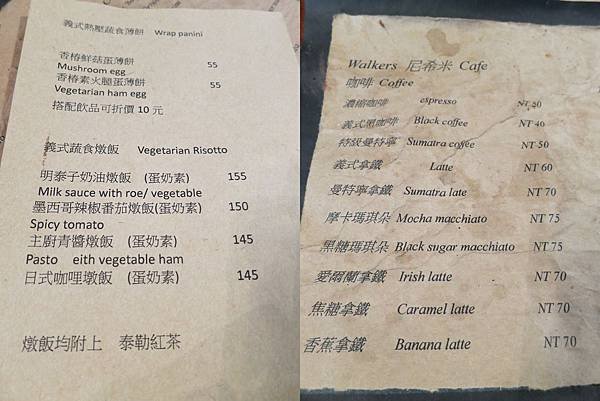 義式熱壓蔬食薄餅 Wrap panini
香椿鮮菇蛋薄餅 55
Mushroom egg
香椿素火腿蛋薄餅 55
Vegetarian ham egg
搭配飲品可折價 10 元
義式蔬食燉飯 Vegetarian Risotto
明泰子奶油燉飯 (蛋奶素) 155
Milk sauce with roe/ vegetable
墨西哥辣椒番茄燉飯(蛋奶素) 150
Spicy tomato
主廚青醬燉飯 (蛋奶素) 145
Pasto eith vegetable ham
日式咖哩墩飯 (蛋奶素) 145
燉飯均附上 泰勒紅茶
Walkers 尼希米 Cafe
咖啡 Coffee
濃縮咖啡 espresso NT 40
義式黑咖啡 Black coffee NT 40
特級曼特寧 Sumatra coffee NT 50
義式拿鐵 Latte NT 60
曼特寧拿鐵 Sumatra late NT 70
摩卡瑪琪朵 Mocha macchiato NT 75
黑糖瑪琪朵 Black sugar macchiato NT 75
愛爾蘭拿鐵 Irish latte NT 70
焦糖拿鐵 Caramel latte NT 70
香蕉拿鐵 Banana latte NT 70